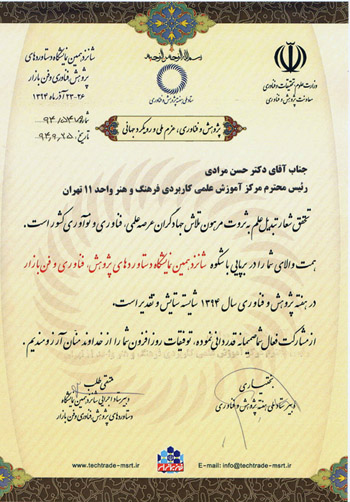 بسم الله الرحمن الرحیم
وزارت علوم، تحقیقات و فناوری
معاونت پژوهش و فناوری
ستاد ملی هفته پژوهش و فناوری
شانزدهمین نمایشگاه دستاوردهای
پژوهش، فناوری و فن بازار
۲۳-۲۶ آذر ماه ۱۳۹۴
شماره:
تاریخ: ۹۴,۹,۲۵
پژوهش و فناوری، عزم ملی و رویکرد جهانی
جناب آقای دکتر حسن مرادی
رئیس محترم مرکز آموزش علمی کاربردی فرهنگ و هنر واحد ۱۱ تهران
تحقق شعار تبدیل علم به ثروت مرهون تلاش جهادگران عرصه علمی، فناوری و نوآوری کشور است.
همت والای شما را در برپایی باشکوه شانزدهمین نمایشگاه دستاوردهای پژوهش، فناوری و فن بازار
در هفته پژوهش و فناوری سال ۱۳۹۴ شایسته ستایش و تقدیر است.
از مشارکت فعال شما صمیمانه قدردانی نموده، توفیقات روزافزون شما را از خداوند منان آرزومندیم.
بختیاری
دبیر ستاد ملی هفته پژوهش و فناوری
حشمتی طلب
دبیر ستاد اجرایی شانزدهمین نمایشگاه
دستاوردهای پژوهش، فناوری و فن بازار
www.techtrade-msrt.ir
E-mail: info@techtrade-msrt.ir